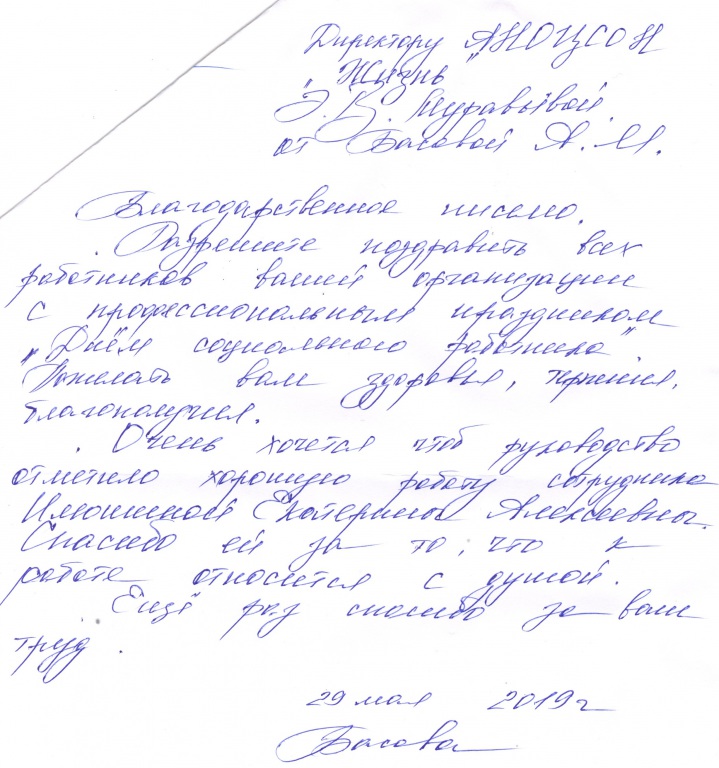 Директору АНОЦСОН
"Жизнь"
Э.В. Муравьёвой
от Басовой А.М.
Благодарственное письмо.
Разрешите поздравить всех
работников вашей организации
с профессиональным праздником
„Днём социального работника".
Пожелать вам здоровья, терпения,
благополучия.
Очень хочется чтоб руководство
отметило хорошую работу сотрудника
Екатерины Алексеевны.
Спасибо ей за то, что к
работе относится с душой.
Ещё раз спасибо за ваш
труд
29 мая 2019 г
Басова